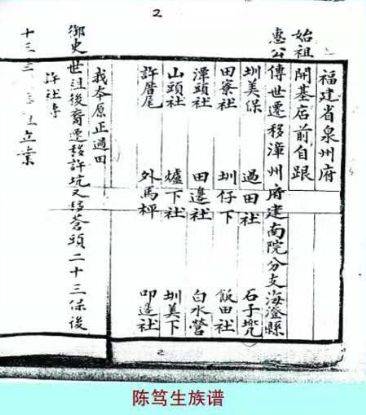 2
福建省泉州府
始祖開基店前自跟
惠公傳世遷移漳州府建南院分支海澄縣
圳美保 過田社 石子兜
田寮社 圳仔下 飯田社
潭頭社 田邊社 白水營
山頭社 爐下社 圳美下
許厝尾 外馬坪 叩邊社
我本原正過田
御史世祖後裔遷移許坑又移苍頭二十三保後
許社
十三 立業
2
陈笃生族谱